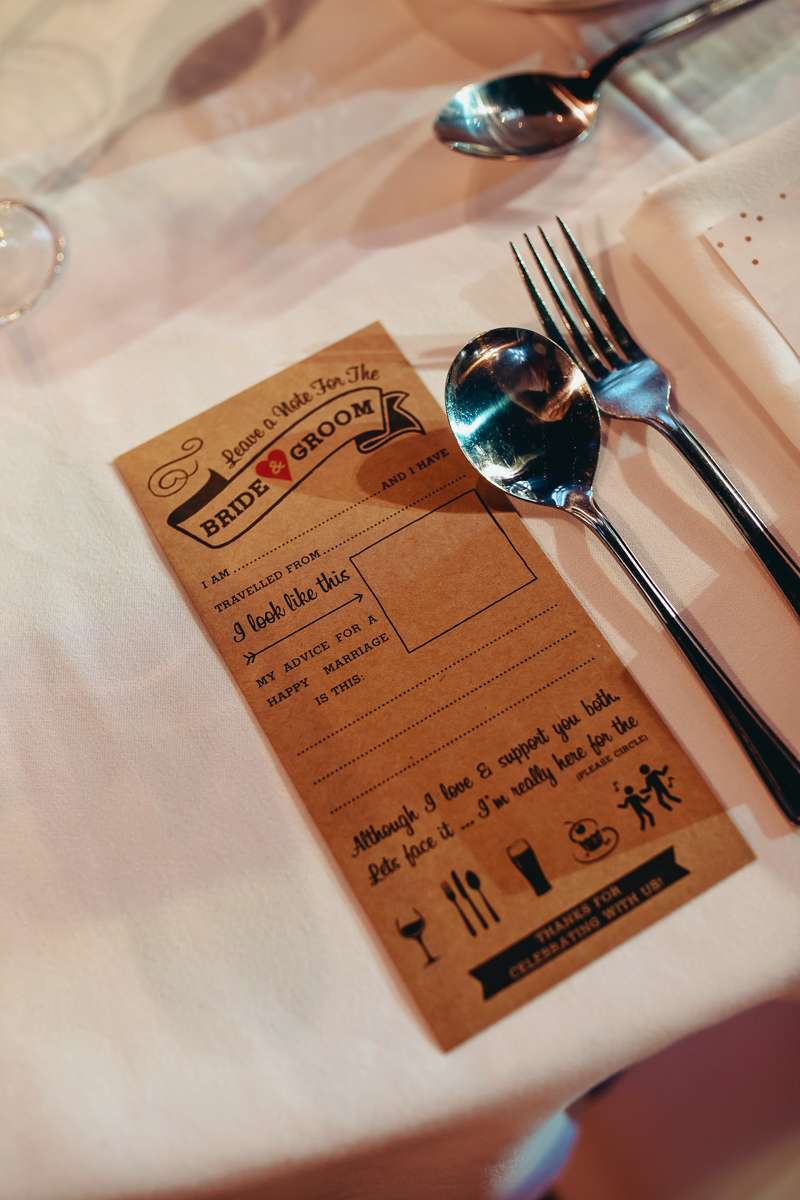 Leave a Note For The
BRIDE & GROOM
I AM AND I HAVE
TRAVELLED FROM
I look like this
MY ADVICE FOR A
HAPPY MARRIAGE
IS THIS:
Although I love & support you both,
Lets face it ... I'm really here for the
(PLEASE CIRCLE)
THANKS FOR
CELEBRATING WITH US!